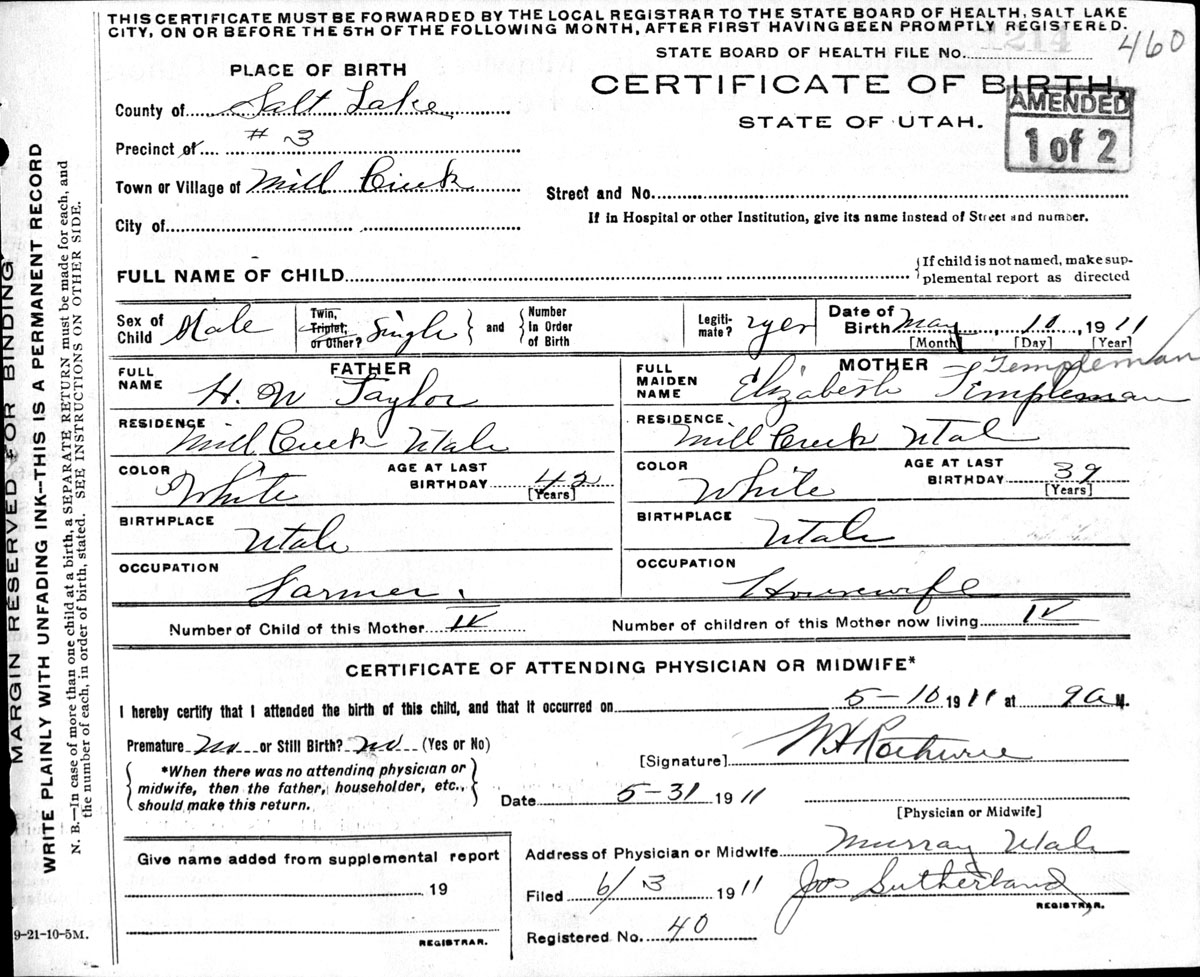 THIS CERTIFICATE MUST BE FORWARDED BY THE LOCAL REGISTRAR TO THE STATE BOARD OF HEALTH, SALT LAKE
CITY, ON OR BEFORE THE 5TH OF THE FOLLOWING MONTH, AFTER FIRST HAVING BEEN PROMPTLY REGISTERED.
STATE BOARD OF HEALTH FILE No. 460
PLACE OF BIRTH
CERTIFICATE OF BIRTH
STATE OF UTAH.
AMENDED
1 of 2
County of Salt Lake
Precinct of #3
Town or Village of Mill Creek
Street and No.
If in Hospital or other Institution, give its name instead of Street and number.
City of
FULL NAME OF CHILD
{If child is not named, make sup-
plemental report as directed
Sex of Child Male
Twin, Triplet, or Other? Single } and { Number In Order of Birth
Legiti-mate? yes
Date of Birth May, 10, 1911
[Month] [Day] [Year]
FATHER
MOTHER Templeman
FULL NAME H. W Taylor
FULL MAIDEN NAME Elizabeth Templeman
RESIDENCE Mill Creek Utah
RESIDENCE Mill Creek Utah
COLOR White AGE AT LAST BIRTHDAY 42 [Years]
COLOR White AGE AT LAST BIRTHDAY 39 [Years]
BIRTHPLACE Utah
BIRTHPLACE Utah
OCCUPATION Farmer.
OCCUPATION Housewife
Number of Child of this Mother IV
Number of children of this Mother now living IV
CERTIFICATE OF ATTENDING PHYSICIAN OR MIDWIFE*
I hereby certify that I attended the birth of this child, and that it occurred on 5-10 1911 at 9a M.
Premature No or Still Birth? No (Yes or No)
[Signature]
*When there was no attending physician or
midwife, then the father, householder, etc.,
should make this return.
Date 5-31 1911
[Physician or Midwife]
Give name added from supplemental report
19
REGISTRAR.
Address of Physician or Midwife Murray Utah
Filed 6/3 1911 Jos Sutherland
REGISTRAR.
Registered No. 40
9-21-10-5M.
MARGIN RESERVED FOR BINDING
WRITE PLAINLY WITH UNFADING INK—THIS IS A PERMANENT RECORD
N. B.—In case of more than one child at a birth, a SEPARATE RETURN must be made for each, and
the number of each, in order of birth, stated. SEE INSTRUCTIONS ON OTHER SIDE.